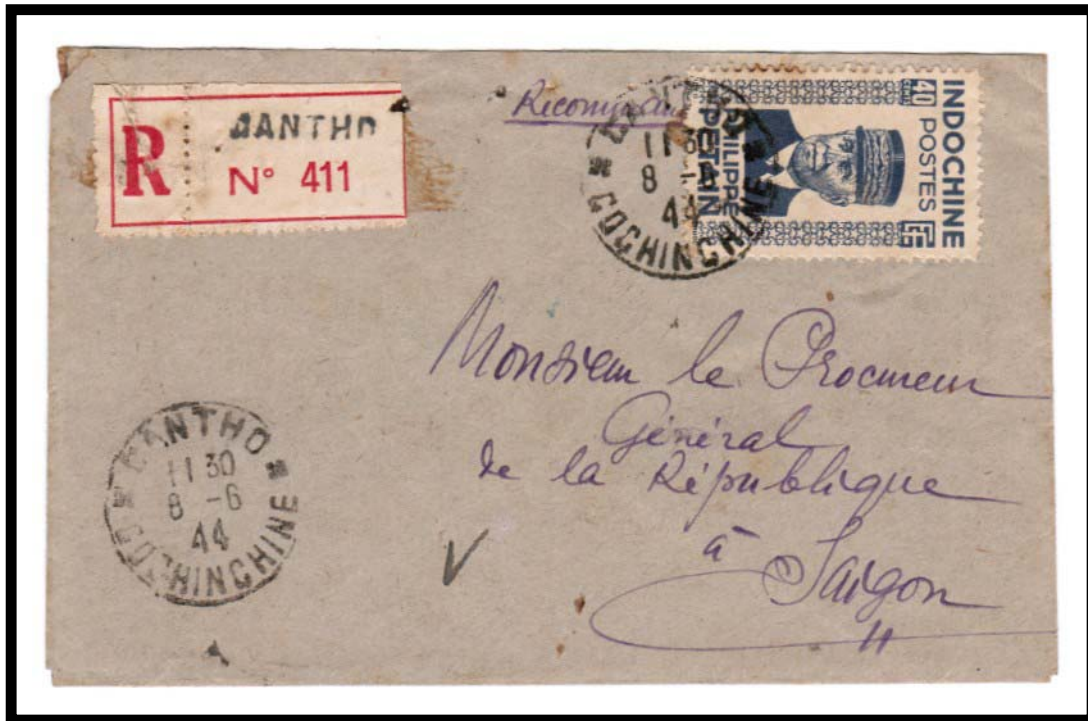 R
CANTHO
N° 411
CANTHO
11 30
8 -6
44
COCHINCHINE
INDOCHINE
40 CENT POSTES
PHILIPPE
PÉTAIN
Monsieur le Procureur
Général
de la République
à
Saigon
CANTHO
11 30
8 -6
44
COCHINCHINE